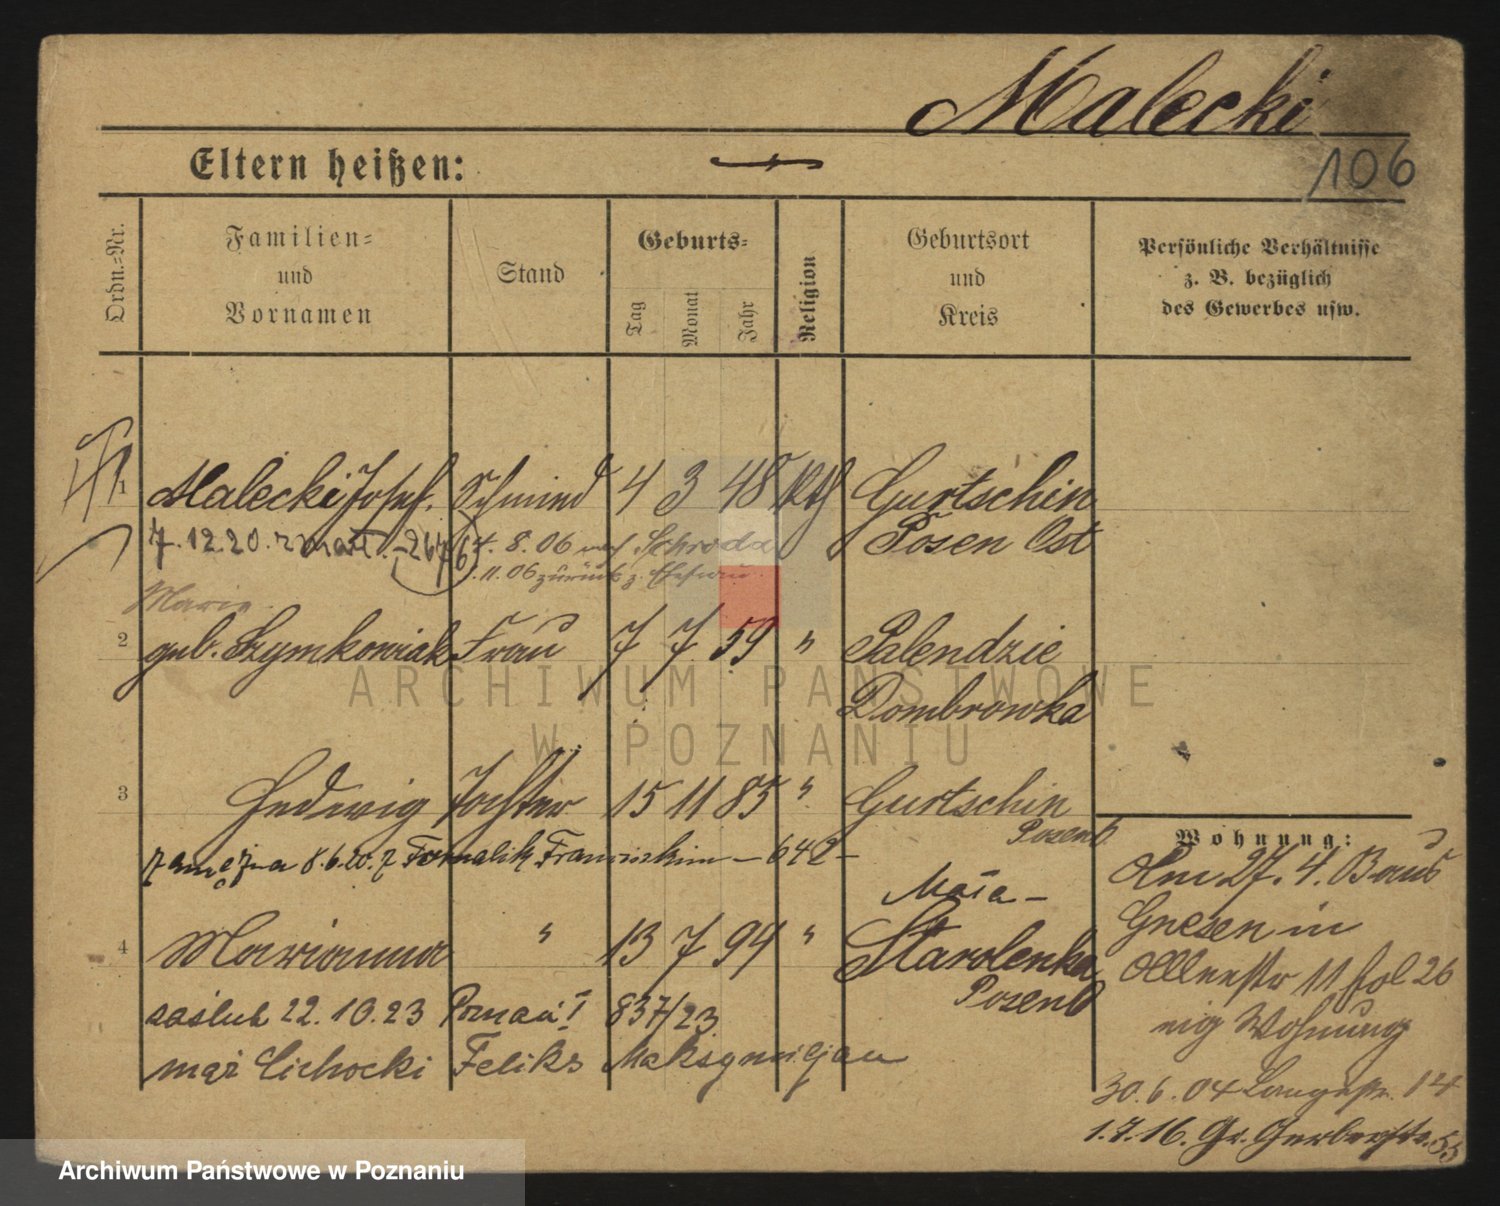 Malecki
Eltern heißen:
106
Ordn.-Nr.
Familien-
und
Vornamen
Stand
Geburts-
Tag
Monat
Jahr
Religion
Geburtsort
und
Kreis
Persönliche Verhältnisse
z. B. bezüglich
des Gewerbes usw.
1 Malecki Josef. Schmied 4 3 48 Kth Gurtschin
Posen Ost
7.12.20. zmarł. - 2676 4. 8. 06 nach Schroda
11. 06 zurück z. Ehefrau
Marie
2 geb. Szymkowiak Frau 7 7 59 " Palendzie
Dombrowka
3 Hedwig Tochter 15 11 85 " Gurtschin
Posen O.
zamężna 8.6.20. z Formalik Franciszkiem - 642 -
Mała -
4 Marianna " 13 7 94 " Starolenka
Posen O
zaślub 22.10.23 Poznań I 837/23
mąż Cichocki Feliks Maksymiljan
Wohnung:
Am 27. 4. B aus
Gnesen in
11 fol 26
Wohnung
30. 6. 04 Langestr. 14
1.7.16. Gr. Gerberstr. 53
ARCHIWUM PAŃSTWOWE
W POZNANIU
Archiwum Państwowe w Poznaniu